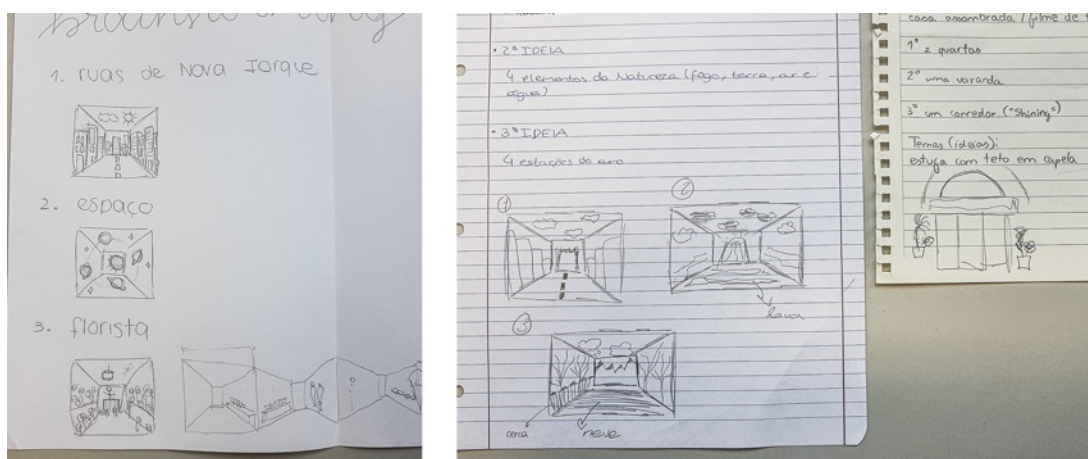 brainstorming
1. ruas de Nova Iorque
2. espaço
3. florista
• 2ª IDEIA
4 elementos da Natureza (fogo, terra, ar e
água)
• 3ª IDEIA
4 estações do ano
1
2
lava
3
cerca
neve
casa assombrada / filme de
1º 2 quartos
2º uma varanda
3º um corredor ("Shining")
Temas (ideias):
estufa com teto em capela